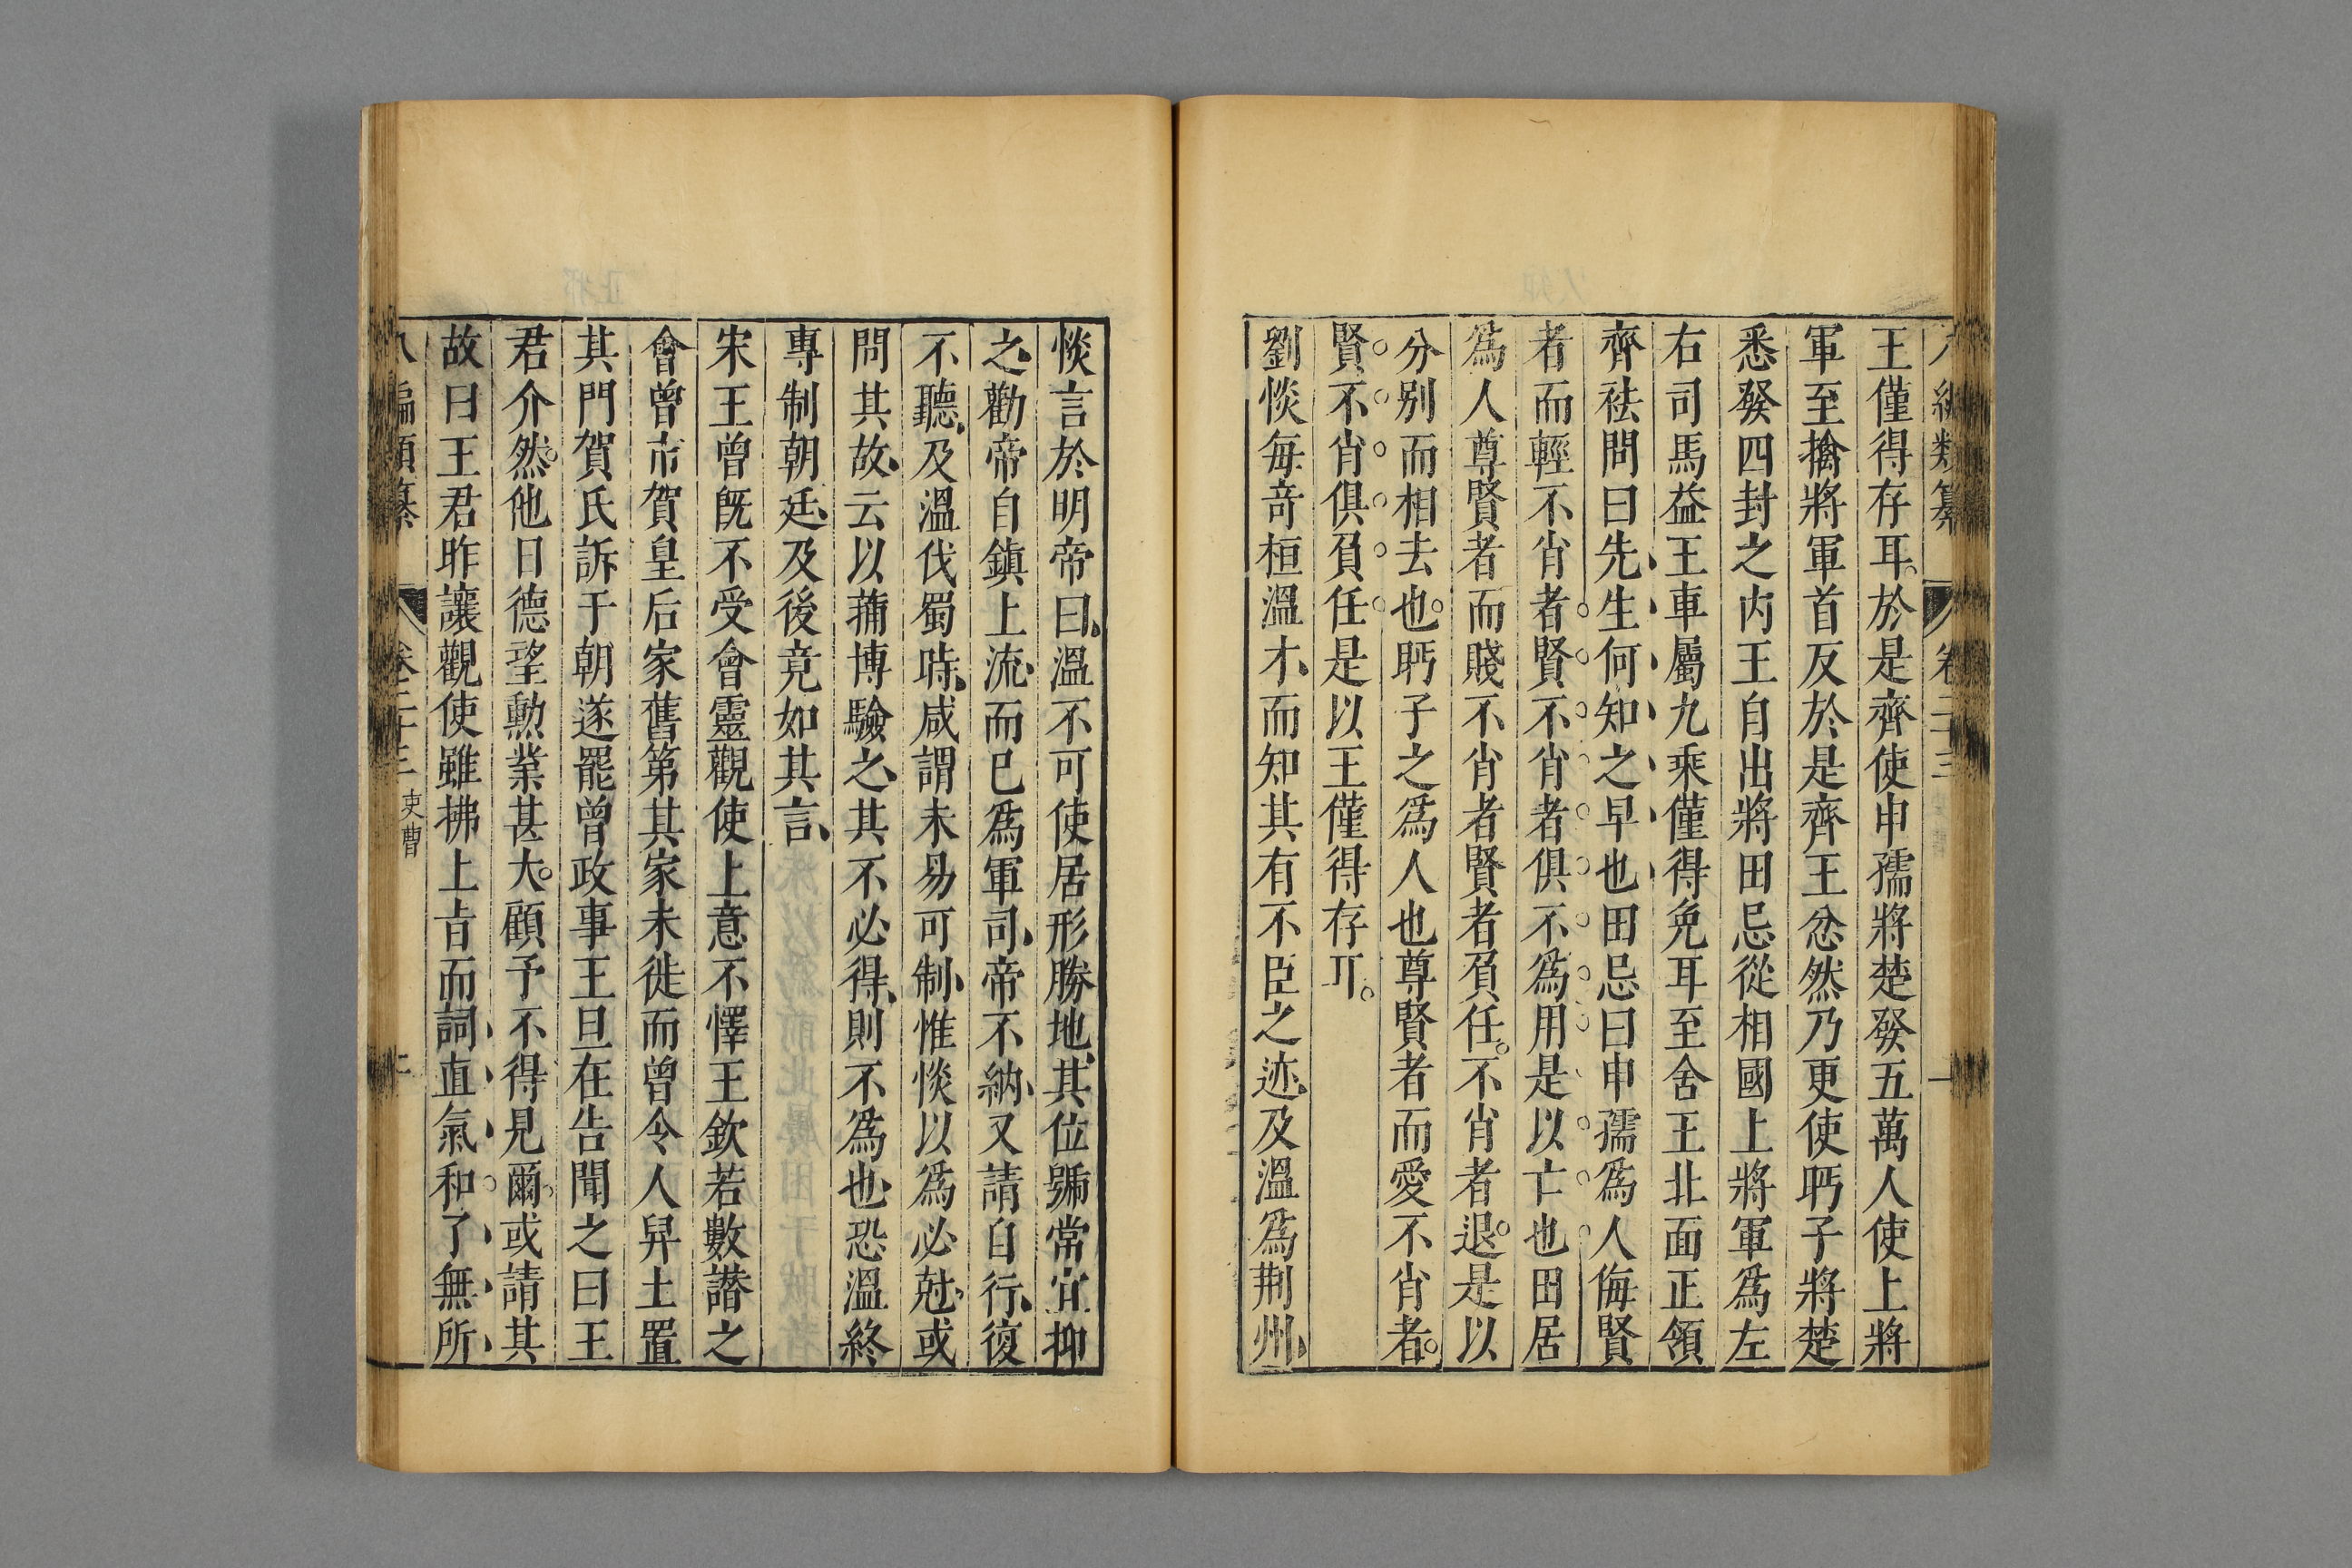 編類纂 卷二十三
王僅得存耳於是齊使申孺將楚發五萬人使上將
軍至擒將軍首反於是齊王忿然乃更使眄子將楚
悉發四封之內王自出將田忌從相國上將軍爲左
右司馬益王車屬九乘僅得免耳至舍王北面正領
齊祛問曰先生何知之早也田忌曰申孺爲人侮賢
者而輕不肖者賢不肖者俱不爲用是以亡也田居
爲人尊賢者而賤不肖者賢者負任不肖者退是以
分別而相去也眄子之爲人也尊賢者而愛不肖者
賢不肖俱負任是以王僅得存耳
劉惔每奇桓溫才而知其有不臣之迹及溫爲荆州
惔言於明帝曰溫不可使居形勝地其位號常宜抑
之勸帝自鎮上流而已爲軍司帝不納又請自行復
不聽及溫伐蜀時咸謂未易可制惟惔以爲必尅或
問其故云以蒱博驗之其不必得則不爲也恐溫終
專制朝廷及後竟如其言
宋王曾旣不受會靈觀使上意不懌王欽若數譖之
會曾市賀皇后家舊第其家未徙而曾令人舁土置
其門賀氏訴于朝遂罷曾政事王旦在告聞之曰王
君介然他日德望勲業甚大顧予不得見爾或請其
故曰王君昨讓觀使雖拂上旨而詞直氣和了無所
八編類纂 卷二十三 吏曹